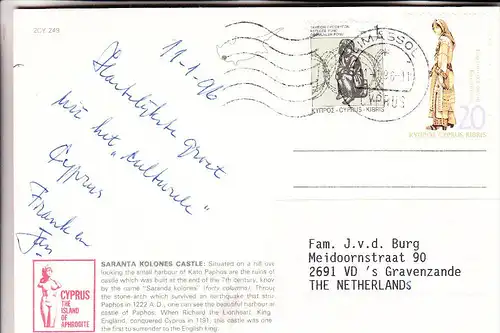 2CY 249
11.1.96
Hartelijkste groet
uit het "culturele"
Cyprus
Frank en
Jan
LIMASSOL
CYPRUS
ΚΥΠΡΟΣ-CYPRUS-KIBRIS
20
ΚΥΠΡΟΣ CYPRUS KIBRIS
Fam. J.v.d. Burg
Meidoornstraat 90
2691 VD 's Gravenzande
THE NETHERLANDS
CYPRUS
ISLAND
OF
APHRODITE
SARANTA KOLONES CASTLE: Situated on a hill over
looking the small harbour of Kato Paphos are the ruins of
castle which was built at the end of the 7th century, know
by the name "Saranda kolones" (forty columns). Throug
the stone-arch which survived an earthquake that stru
Paphos in 1222 A.D., one can see the beautiful harbour a
castle of Paphos. When Richard the Lionheart, King
England, conquered Cyprus in 1191, this castle was one
the first to surrender to the English king.